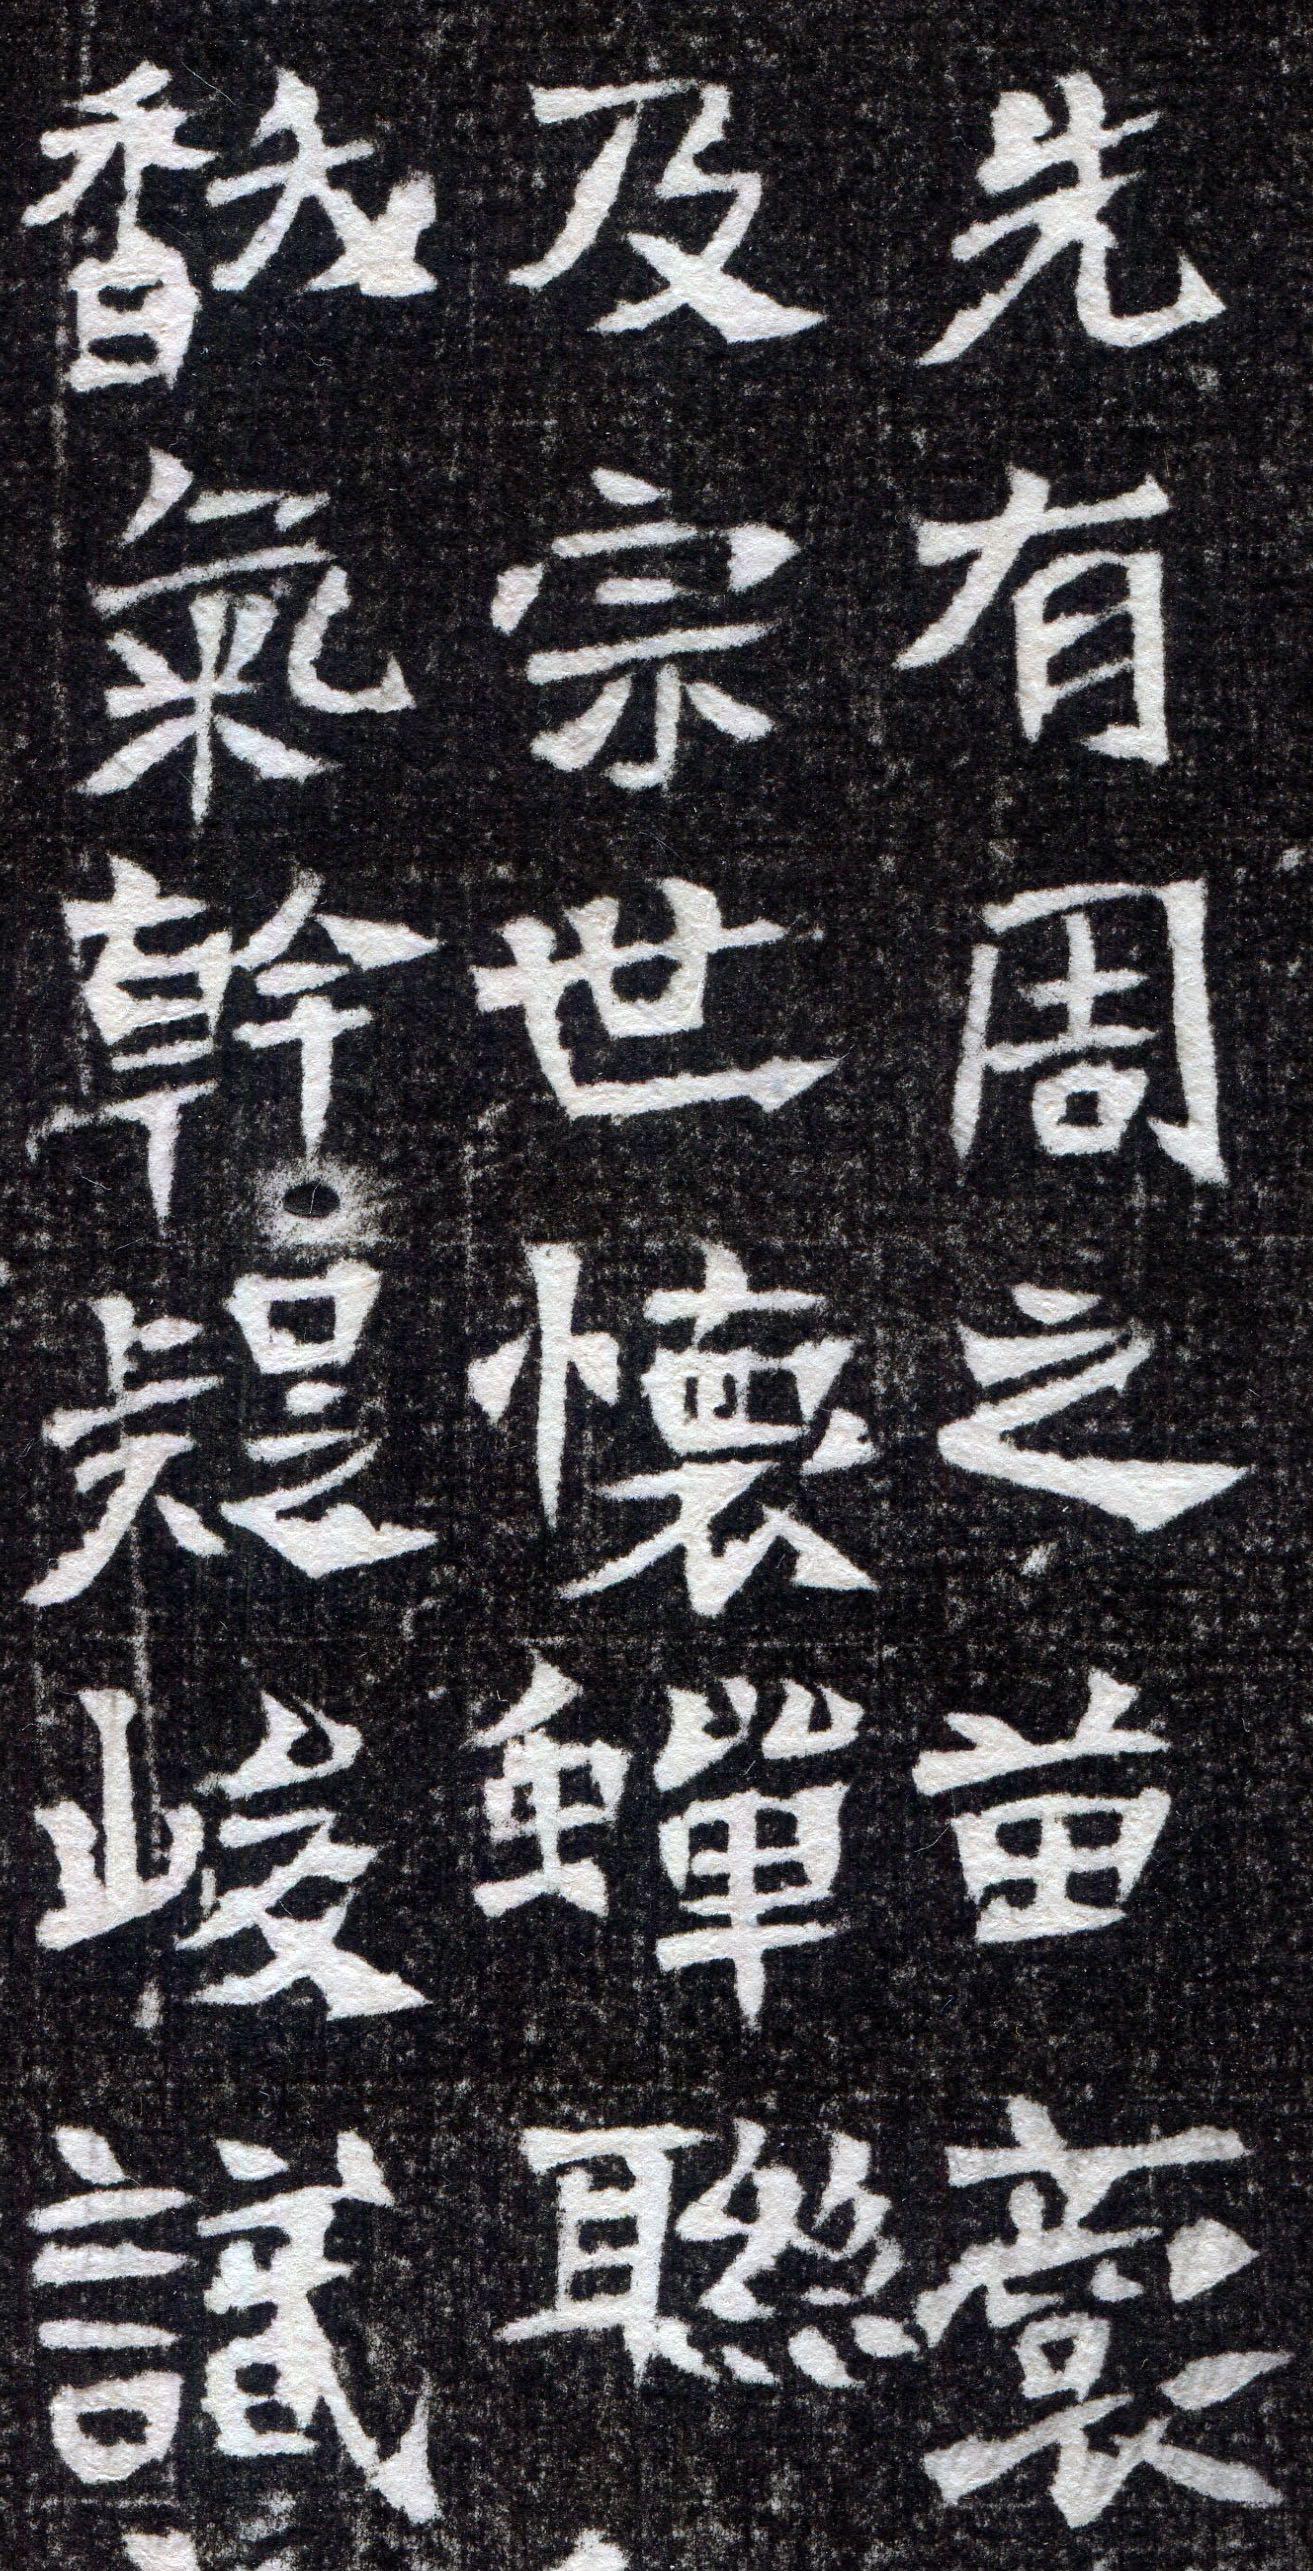 先有周之苗裔
及宗世懷蟬聯
馛氣幹疑峻識